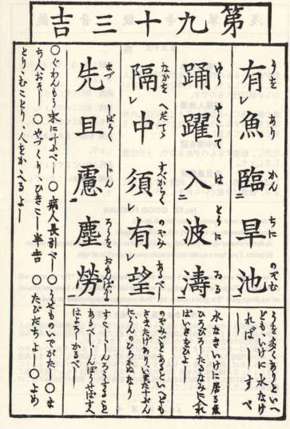 第九十三吉
有魚臨早池
うを あり かん ちに のぞむ
踊躍入波濤
ゆう やくして は とうに いる
隔中須有望
なかを へだてゝ すべからく のぞみ あるべし
先且慮塵勞
まづ しばらく じん ろうを おもんぱかる
うを多くありといへ
どもいけに水なけ
れば
水なきいけに居る魚
ひろびろしたるなみに入れ
ばいきをひよし
のぞみごとあるといへども
さまたげあり
すこし
あるべし
はよろしかるべし
○ぐわんもう ○病人長引べし ○うせものいでがたし ○ま
ち人おそし ○やづくりひきこし半吉 ○たびだちよし ○よめ
とりむことり人をかゝへるよし